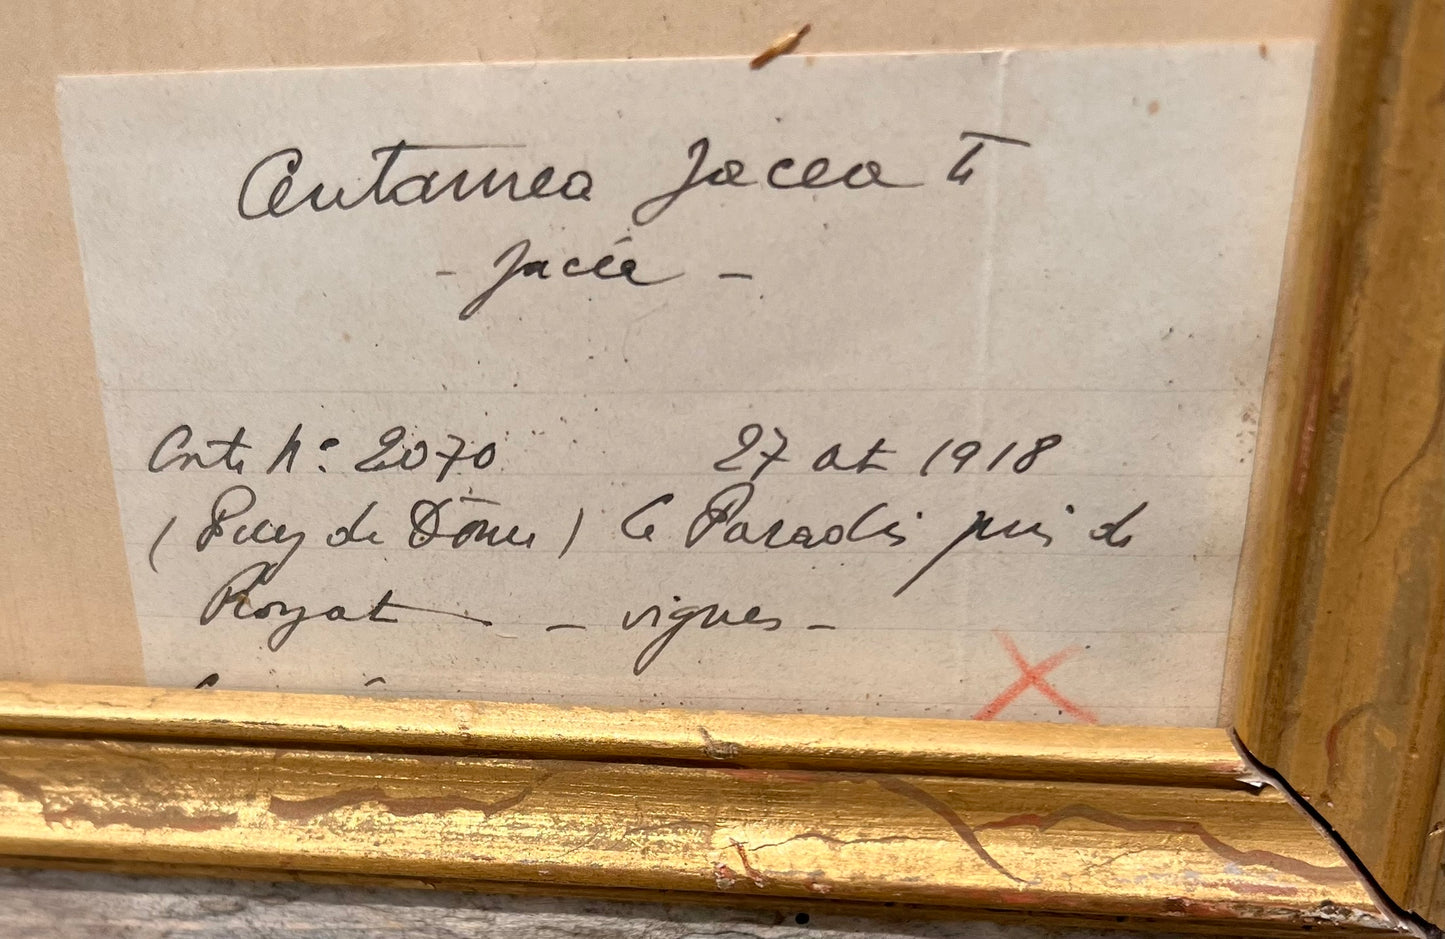 Centaurea Jacea L
- Jacée -
Cent. N° 2070 27 oct 1918
(Puy de Dôme) Le Paradis près de
Royat - vignes -